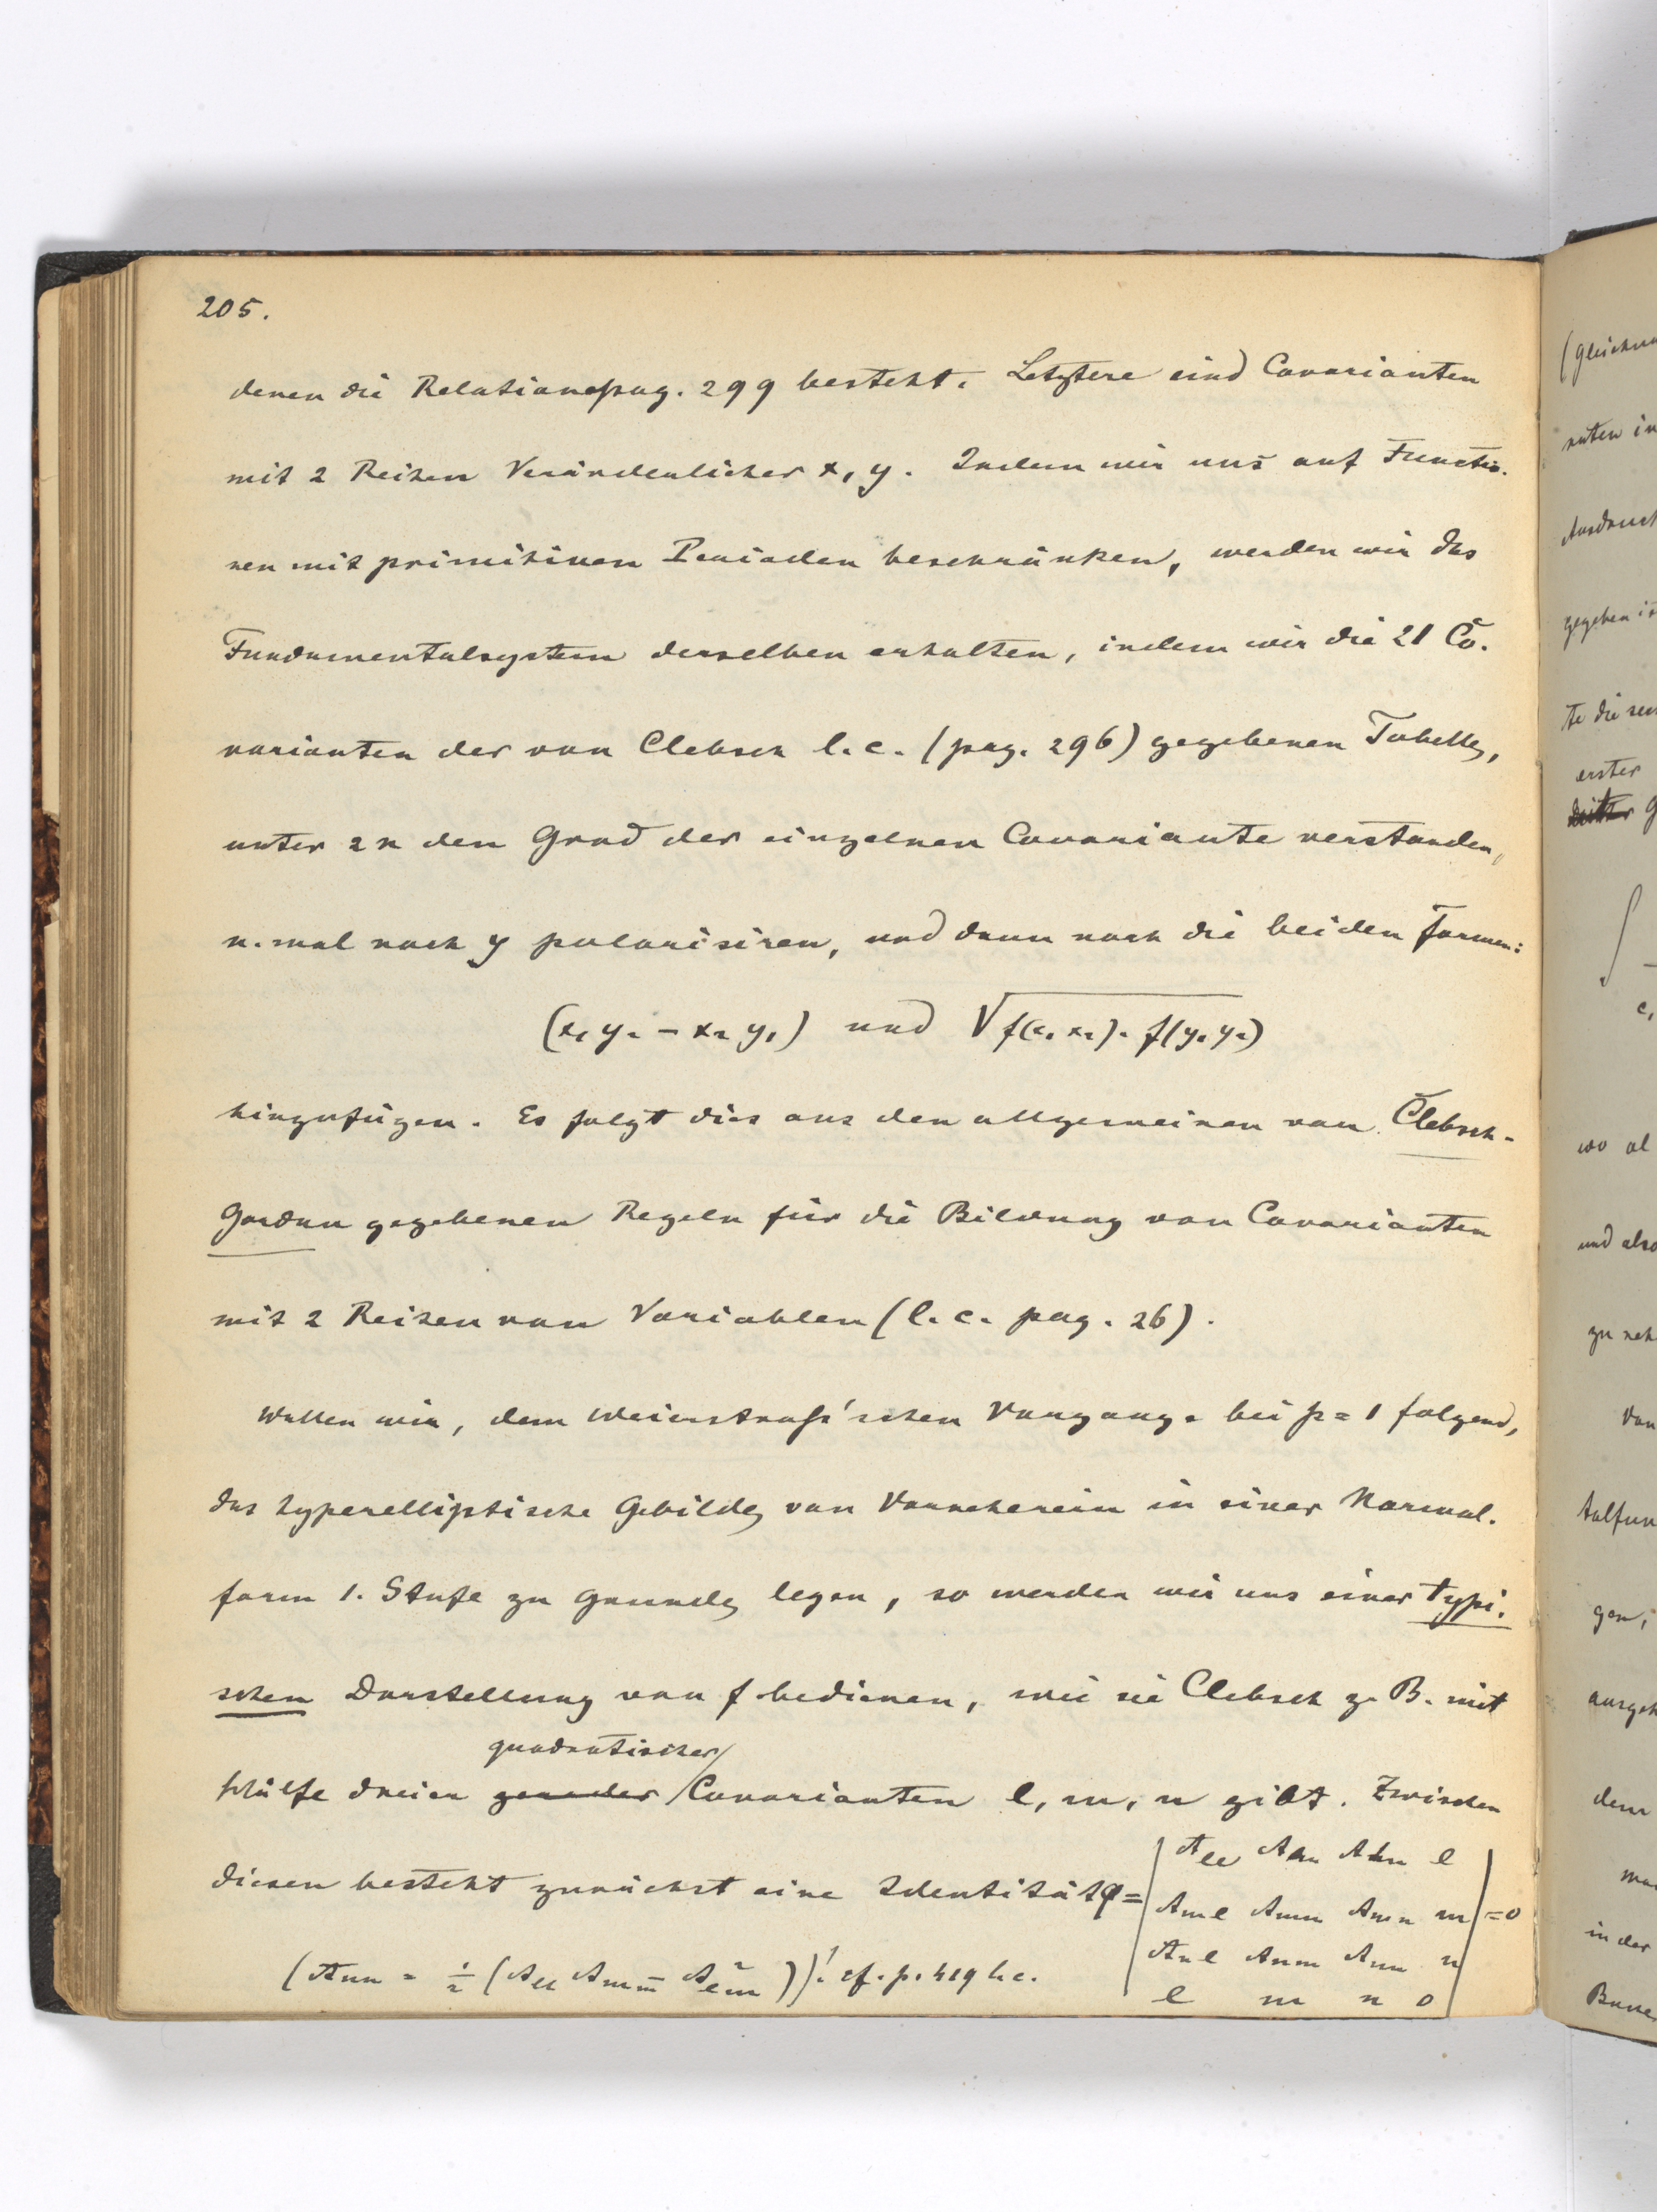 205.
denen die Relation pag. 299 besteht. Letztere sind Covarianten
mit 2 Reihen Veränderlicher x, y. Indem wir uns auf Functio-
nen mit primitiven Perioden beschränken, werden wir das
Fundamentalsystem derselben erhalten, indem wir die 21 Co-
varianten der von Clebsch l. c. (pag. 296) gegebenen Tabelle,
unter 2n den Grad der einzelnen Covariante verstanden,
n-mal nach y polarisiren, und dann noch die beiden Formen:
(x₁ y₂ – x₂ y₁) und √f(x₁ x₂). f(y₁ y₂)
hinzufügen. Es folgt dies aus den allgemeinen von Clebsch-
Gordan gegebenen Regeln für die Bildung von Covarianten
mit 2 Reihen von Variablen (l. c. pag. 26).
Wollen wir, dem Weierstraß'schen Vorgange bei p = 1 folgend,
das hyperelliptische Gebilde von Vorneherein in einer Normal-
form 1. Stufe zu Grunde legen, so werden wir uns einer typi-
schen Darstellung von f bedienen, wie sie Clebsch z. B. mit
quadratischer
Hülfe dreier gerader Covarianten l, m, n gibt. Zwischen
diesen besteht zunächst eine Identität φ = | A_ll A_lm A_ln l |
| A_ml A_mm A_mn m | = 0
| A_nl A_nm A_nn n |
| l m n 0 |
(A_nn = ½ (A_ll A_mm – A²_lm)); cf. p. 419 l. c.
(Gleichun
nuten in
Ausdruck
gegeben is
te die
erster
dritter G
∫
c₁
wo al
und also
zu neh
Von
talfun
gen,
ausgeh
dem
in der